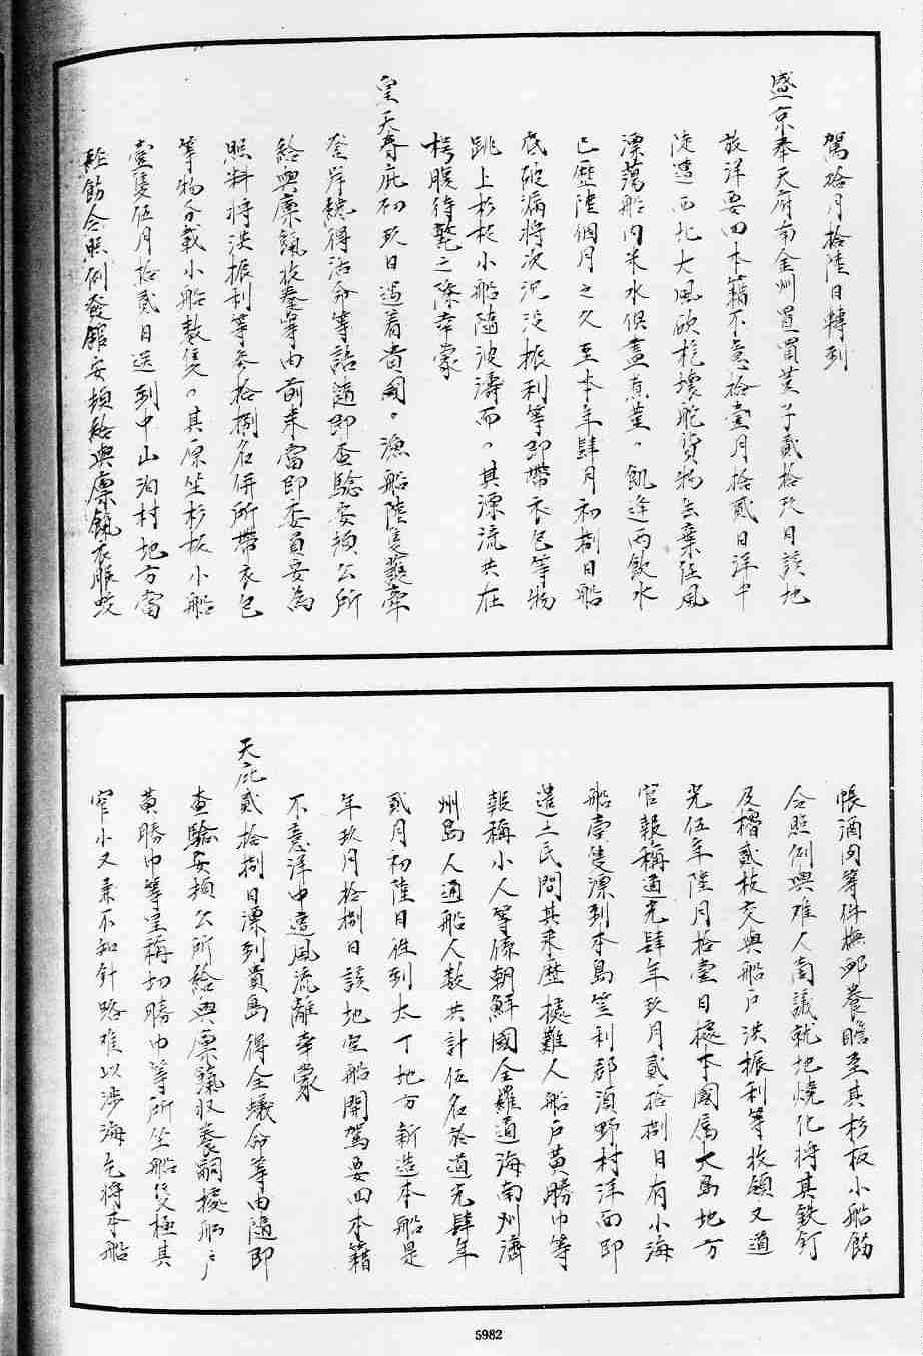 駕拾月拾陸日轉到
盛京奉天府南金州置買荳子貳拾玖日該地
放洋要回本籍不意拾壹月拾貳日洋中
陡遭西北大風砍桅壞舵貨物丟棄任風
漂蕩船內米水俱盡煮荳充飢逢雨飲水
已歷陸個月之久至本年肆月初捌日船
底破漏將次沉沒振利等即帶衣包等物
跳上杉板小船隨波濤而〻其漂流共在
枵腹待斃之際幸蒙
皇天眷庇初玖日遇着貴國〻漁船陸隻蒙牽
登岸纔得活命等語隨即查驗安頓公所
給與廩餼收養等由前來當即委員妥為
照料將洪振利等叁拾捌名併所帶衣包
等物分載小船數隻〻其原坐杉板小船
壹隻伍月拾貳日送到中山泊村地方當
經飭令照例發館安頓給與廩餼衣服蚊
帳酒肉等件撫卹養贍至其杉板小船飭
令照例與難人商議就地燒化將其鉄釘
及櫓貳枝交與船戶洪振利等收領又道
光伍年陸月拾壹日據本國屬大島地方
官報稱道光肆年玖月貳拾捌日有小海
船壹隻漂到本島笠利郡須野村洋面即
遣土民問其來歷據難人船戶黃勝巾等
報稱小人等係朝鮮國全羅道海南州濟
州島人通船人數共計伍名於道光肆年
貳月初陸日徃到太丁地方新造本船是
年玖月拾捌日該地空船開駕要回本籍
不意洋中遭風流離幸蒙
天庇貳拾捌日漂到貴島得全蟻命等由隨即
查驗安頓公所給與廩餼收養嗣據船戶
黃勝巾等呈稱切勝巾等所坐船隻極其
窄小又兼不知針路难以涉海乞將本船
5982